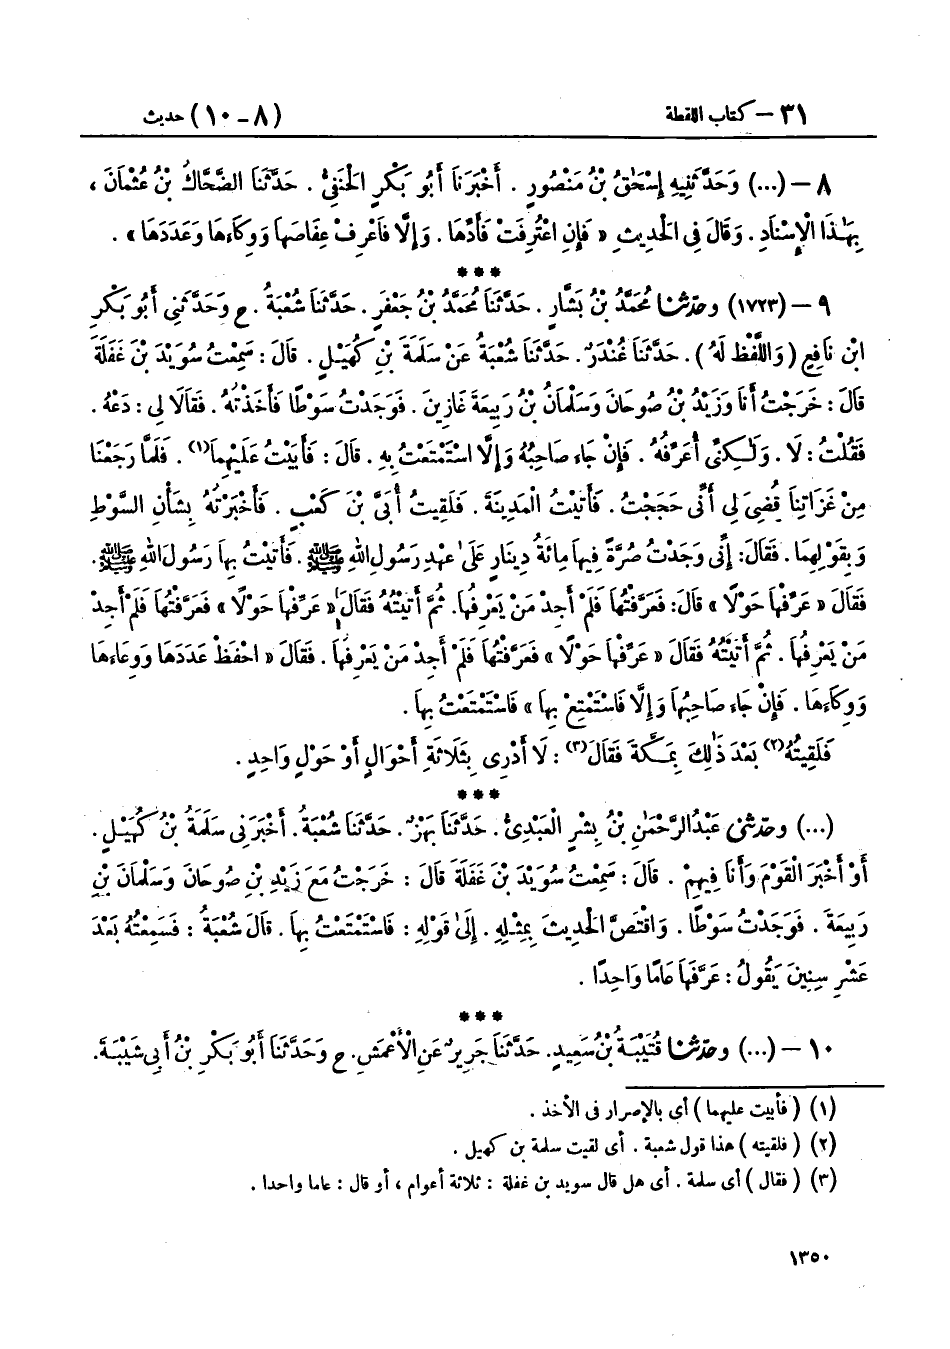 ٣١ – كتاب اللقطة (٨-١٠) حديث
٨ – (...) وَحَدَّثَنِيهِ إِسْحَٰقُ بْنُ مَنْصُورٍ . أَخْبَرَنَا أَبُو بَكْرٍ الْحَنَفِيُّ . حَدَّثَنَا الضَّحَّاكُ بْنُ عُثْمَانَ ،
بِهَٰذَا الْإِسْنَادِ . وَقَالَ فِي الْحَدِيثِ « فَإِنِ اعْتُرِفَتْ فَأَدِّهَا . وَإِلَّا فَاعْرِفْ عِفَاصَهَا وَوِكَاءَهَا وَعَدَدَهَا » .
***
٩ – (١٧٢٣) وحَدَّثَنَا مُحَمَّدُ بْنُ بَشَّارٍ . حَدَّثَنَا مُحَمَّدُ بْنُ جَعْفَرٍ . حَدَّثَنَا شُعْبَةُ . ح وَحَدَّثَنِي أَبُو بَكْرِ
ابْنُ نَافِعٍ ( وَاللَّفْظُ لَهُ ) . حَدَّثَنَا غُنْدَرٌ . حَدَّثَنَا شُعْبَةُ عَنْ سَلَمَةَ بْنِ كُهَيْلٍ . قَالَ : سَمِعْتُ سُوَيْدَ بْنَ غَفَلَةَ
قَالَ : خَرَجْتُ أَنَا وَزَيْدُ بْنُ صُوحَانَ وَسَلْمَانُ بْنُ رَبِيعَةَ غَازِينَ . فَوَجَدْتُ سَوْطًا فَأَخَذْتُهُ . فَقَالَا لِي : دَعْهُ .
فَقُلْتُ : لَا . وَلَٰكِنِّي أُعَرِّفُهُ . فَإِنْ جَاءَ صَاحِبُهُ وَإِلَّا اسْتَمْتَعْتُ بِهِ . قَالَ : فَأَبَيْتُ عَلَيْهِمَا(١) . فَلَمَّا رَجَعْنَا
مِنْ غَزَاتِنَا قُضِيَ لِي أَنِّي حَجَجْتُ . فَأَتَيْتُ الْمَدِينَةَ . فَلَقِيتُ أُبَيَّ بْنَ كَعْبٍ . فَأَخْبَرْتُهُ بِشَأْنِ السَّوْطِ
وَبِقَوْلِهِمَا . فَقَالَ : إِنِّي وَجَدْتُ صُرَّةً فِيهَا مِائَةُ دِينَارٍ عَلَىٰ عَهْدِ رَسُولِ اللهِ ﷺ . فَأَتَيْتُ بِهَا رَسُولَ اللهِ ﷺ .
فَقَالَ « عَرِّفْهَا حَوْلًا » قَالَ : فَعَرَّفْتُهَا فَلَمْ أَجِدْ مَنْ يَعْرِفُهَا . ثُمَّ أَتَيْتُهُ فَقَالَ « عَرِّفْهَا حَوْلًا » فَعَرَّفْتُهَا فَلَمْ أَجِدْ
مَنْ يَعْرِفُهَا . ثُمَّ أَتَيْتُهُ فَقَالَ « عَرِّفْهَا حَوْلًا » فَعَرَّفْتُهَا فَلَمْ أَجِدْ مَنْ يَعْرِفُهَا . فَقَالَ « احْفَظْ عَدَدَهَا وَوِعَاءَهَا
وَوِكَاءَهَا . فَإِنْ جَاءَ صَاحِبُهَا وَإِلَّا فَاسْتَمْتِعْ بِهَا » فَاسْتَمْتَعْتُ بِهَا .
فَلَقِيتُهُ(٢) بَعْدَ ذَٰلِكَ بِمَكَّةَ فَقَالَ(٣) : لَا أَدْرِي بِثَلَاثَةِ أَحْوَالٍ أَوْ حَوْلٍ وَاحِدٍ .
***
(...) وحَدَّثَنِي عَبْدُ الرَّحْمَٰنِ بْنُ بِشْرٍ الْعَبْدِيُّ . حَدَّثَنَا بَهْزٌ . حَدَّثَنَا شُعْبَةُ . أَخْبَرَنِي سَلَمَةُ بْنُ كُهَيْلٍ .
أَوْ أَخْبَرَ الْقَوْمَ وَأَنَا فِيهِمْ . قَالَ : سَمِعْتُ سُوَيْدَ بْنَ غَفَلَةَ قَالَ : خَرَجْتُ مَعَ زَيْدِ بْنِ صُوحَانَ وَسَلْمَانَ بْنِ
رَبِيعَةَ . فَوَجَدْتُ سَوْطًا . وَاقْتَصَّ الْحَدِيثَ بِمِثْلِهِ . إِلَىٰ قَوْلِهِ : فَاسْتَمْتَعْتُ بِهَا . قَالَ شُعْبَةُ : فَسَمِعْتُهُ بَعْدَ
عَشْرِ سِنِينَ يَقُولُ : عَرَّفَهَا عَامًا وَاحِدًا .
***
١٠ – (...) وحَدَّثَنَا قُتَيْبَةُ بْنُ سَعِيدٍ . حَدَّثَنَا جَرِيرٌ عَنِ الْأَعْمَشِ . ح وَحَدَّثَنَا أَبُو بَكْرِ بْنُ أَبِي شَيْبَةَ .
(١) ( فأبيت عليهما ) أى بالإصرار فى الأخذ .
(٢) ( فلقيته ) هذا قول شعبة . أى لقيت سلمة بن كهيل .
(٣) ( فقال ) أى سلمة . أى هل قال سويد بن غفلة : ثلاثة أعوام ، أو قال : عاما واحدا .
١٣٥٠